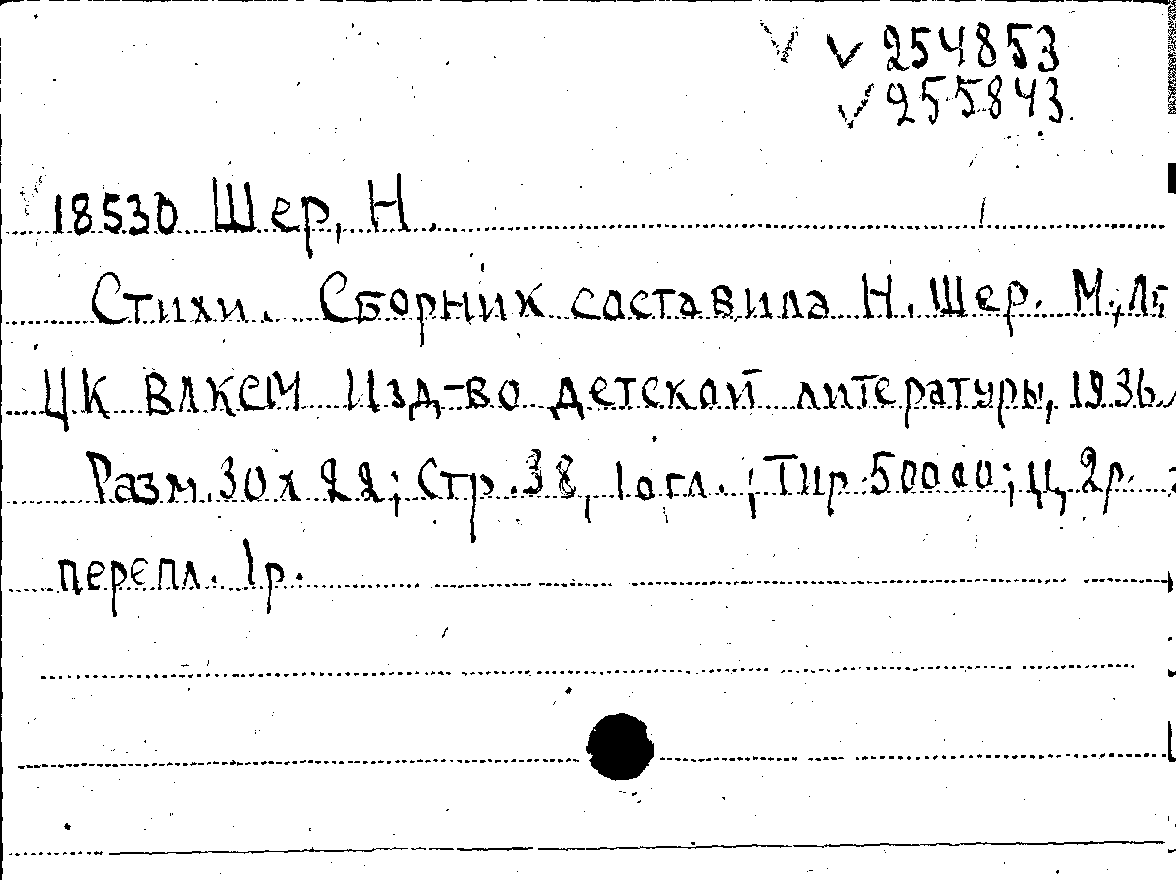 ✓ ✓ 254853
✓ 255843
✓ 18530 Шер, Н.
Стихи. Сборник составила Н. Шер. М.; Л;
ЦК ВЛКСМ Изд-во детской литературы, 1936.
Разм. 30 х 22; Стр. 38, 1 огл.; Тир. 50000; Ц. 2р.
перепл. 1р.